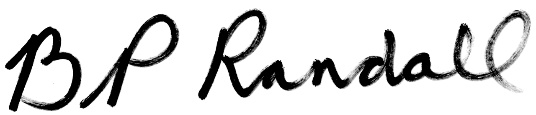 BP Randall